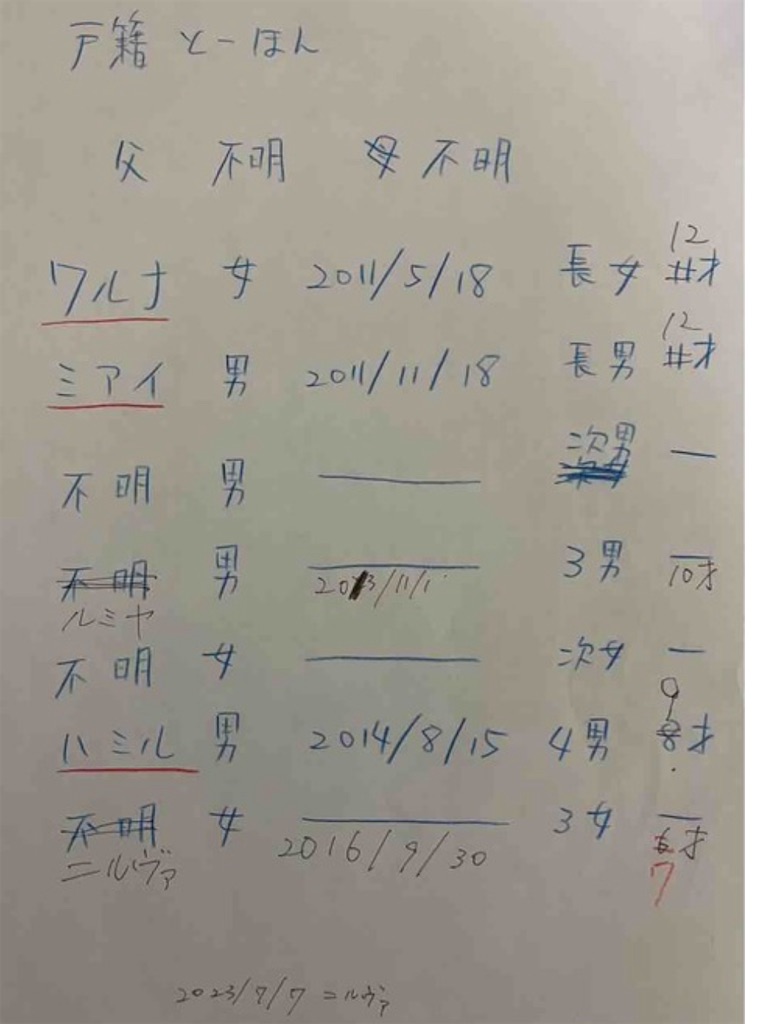 戸籍 とーほん
父 不明 母 不明
12
ワルナ 女 2011/5/18 長女 才
12
ミアイ 男 2011/11/18 長男 才
次男 —
不明 男
不明 男 3男 —
ルミヤ 2013/11/1 10才
不明 女 次女 —
9
ハミル 男 2014/8/15 4男 8才
不明 女 3女 —
ニルヴァ 2016/9/30 6才
7
2023/7/7 ニルヴァ